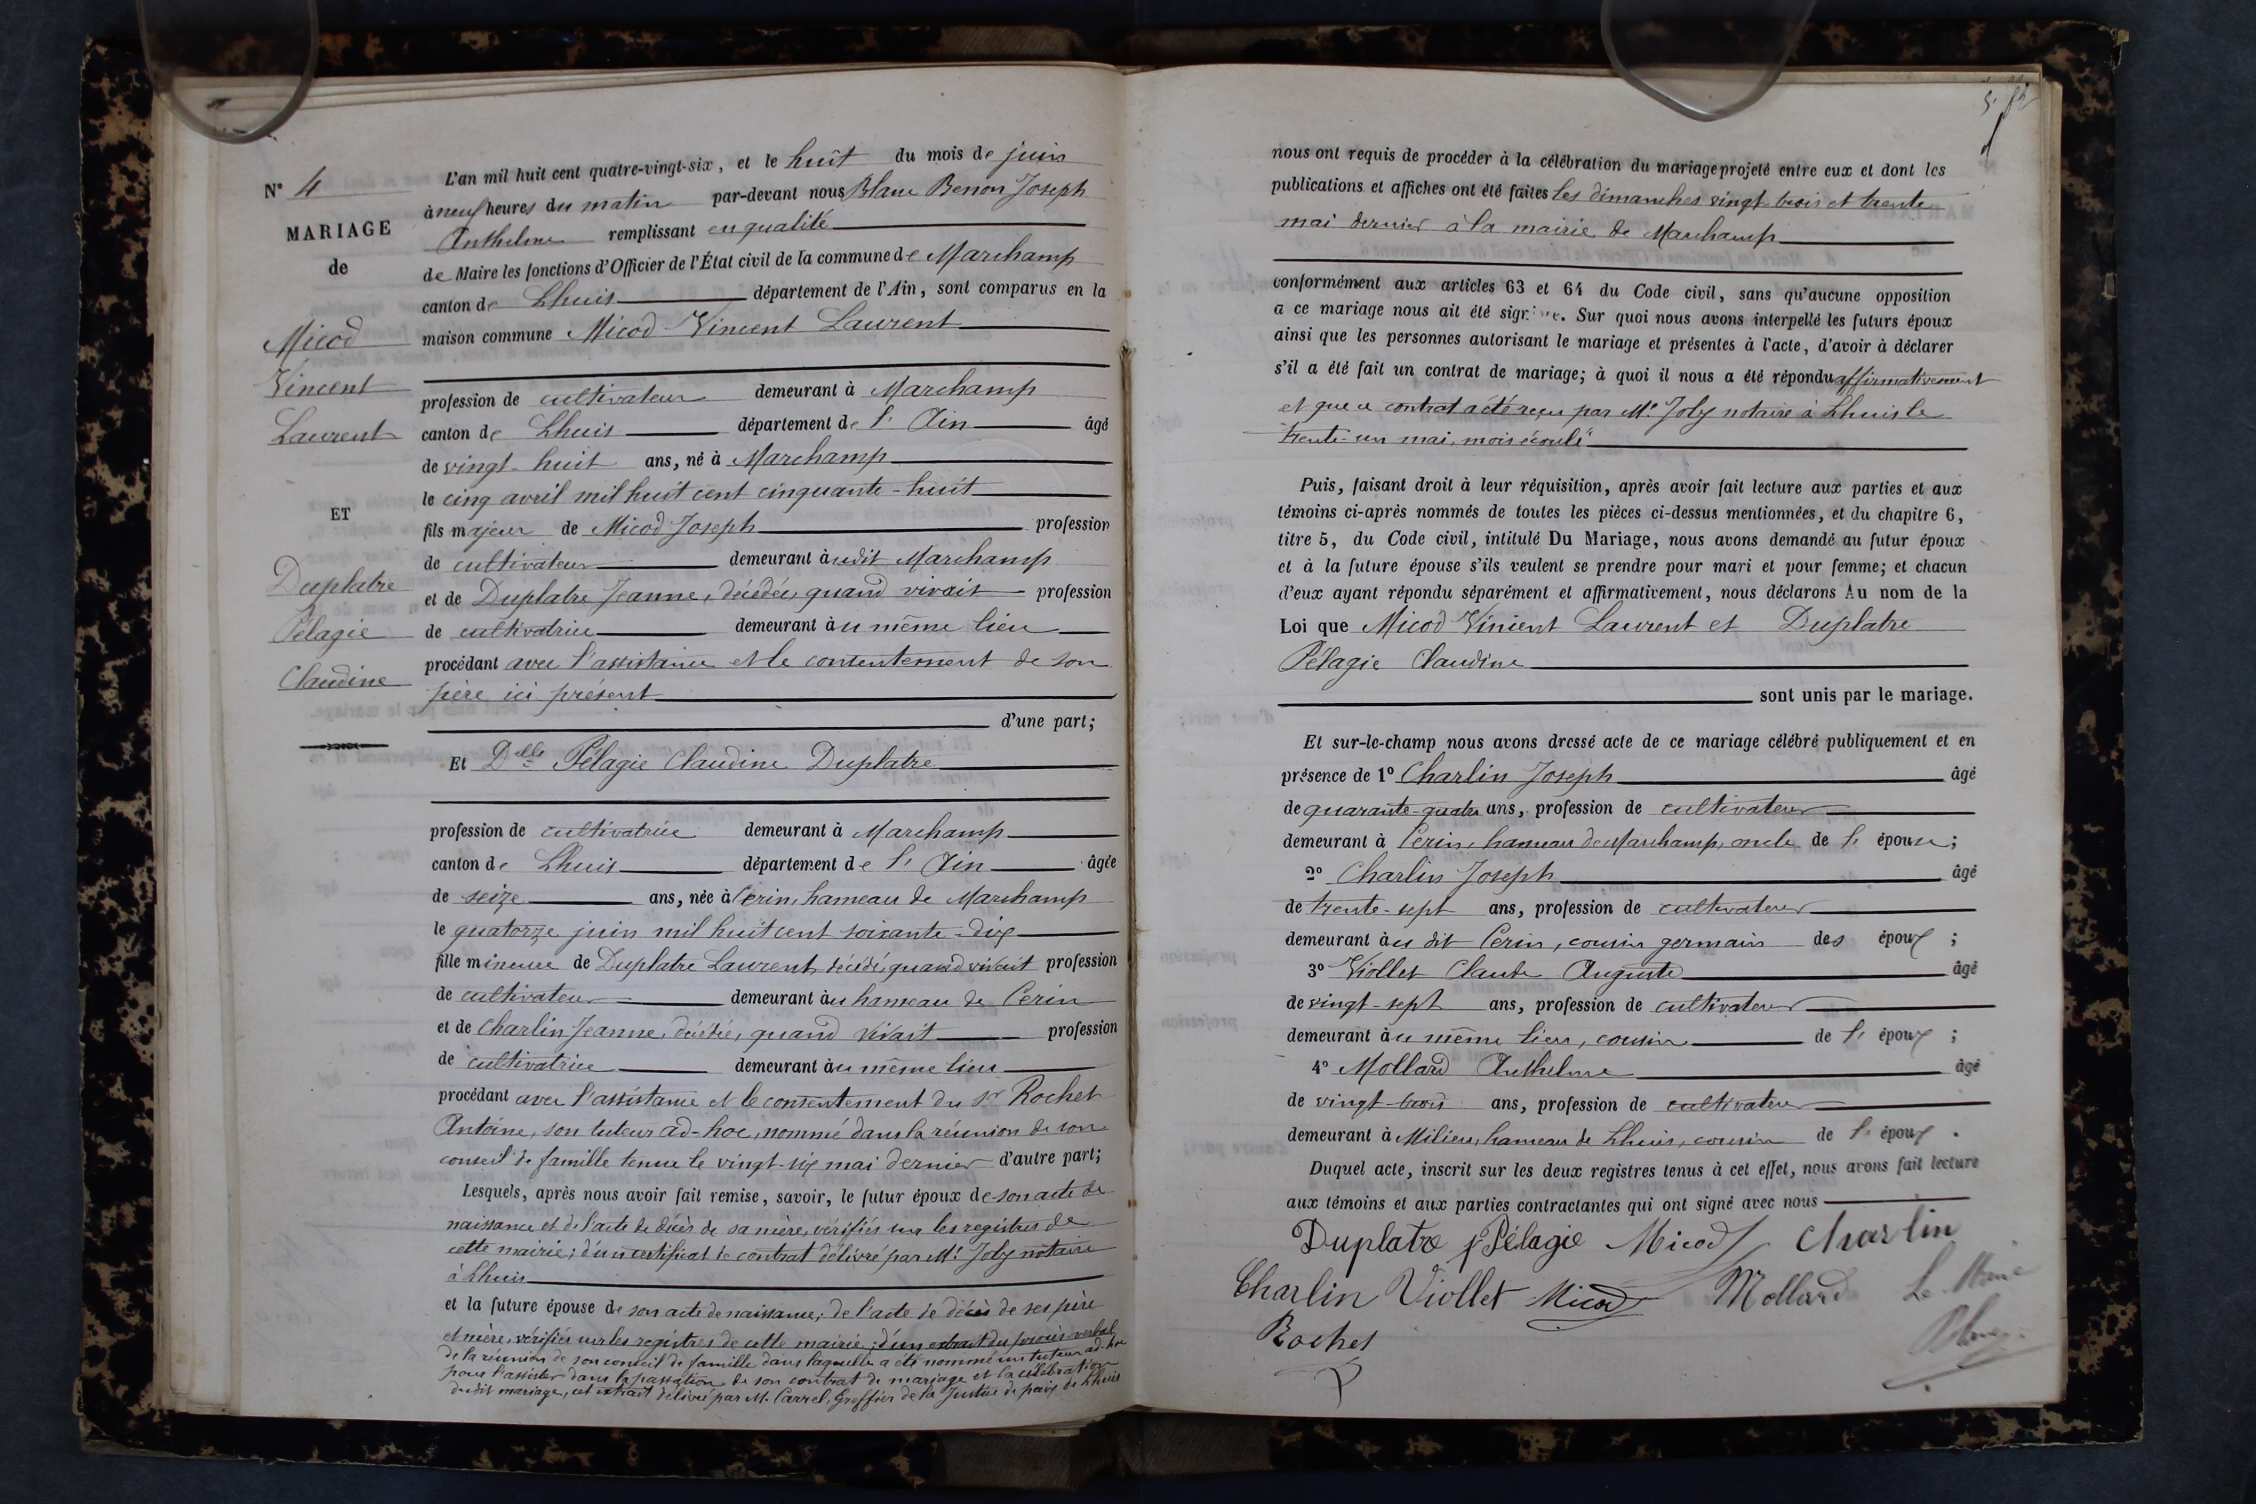 N° 4
MARIAGE
de
Micod
Vincent
Laurent
ET
Duplatre
Pélagie
Claudine
L'an mil huit cent quatre-vingt-six, et le huit du mois de juin
à neuf heures du matin par-devant nous Blanc Benon Joseph
Anthelme remplissant en qualité
de Maire les fonctions d'Officier de l'État civil de la commune de Marchamp
canton de Lhuis département de l'Ain, sont comparus en la
maison commune Micod Vincent Laurent
profession de cultivateur demeurant à Marchamp
canton de Lhuis département de l'Ain âgé
de vingt-huit ans, né à Marchamp
le cinq avril mil huit cent cinquante-huit
fils majeur de Micod Joseph profession
de cultivateur demeurant audit Marchamp
et de Duplatre Jeanne, décédée, quand vivait profession
de cultivatrice demeurant au même lieu
procédant avec l'assistance et le consentement de son
père ici présent
d'une part;
Et Delle Pélagie Claudine Duplatre
profession de cultivatrice demeurant à Marchamp
canton de Lhuis département de l'Ain âgée
de seize ans, née à Cerin, hameau de Marchamp
le quatorze juin mil huit cent soixante-dix
fille mineure de Duplatre Laurent, décédé, quand vivait profession
de cultivateur demeurant au hameau de Cerin
et de Charlin Jeanne, décédée, quand vivait profession
de cultivatrice demeurant au même lieu
procédant avec l'assistance et le consentement du Sr Rochet
Antoine, son tuteur ad-hoc, nommé dans la réunion de son
conseil de famille tenue le vingt-six mai dernier d'autre part;
Lesquels, après nous avoir fait remise, savoir, le futur époux de son acte de
naissance et de l'acte de décès de sa mère, vérifiés sur les registres de
cette mairie; d'un certificat de contrat délivré par Me Joly notaire
à Lhuis
et la future épouse de son acte de naissance; de l'acte de décès de ses père
et mère, vérifiés sur les registres de cette mairie; d'un extrait du procès-verbal
de la réunion de son conseil de famille dans laquelle a été nommé un tuteur ad-hoc
pour l'assister dans la passation de son contrat de mariage et la célébration
dudit mariage, cet extrait délivré par M. Carrel, Greffier de la Justice de paix de Lhuis
nous ont requis de procéder à la célébration du mariage projeté entre eux et dont les
publications et affiches ont été faites les dimanches vingt trois et trente
mai dernier à la mairie de Marchamp
conformément aux articles 63 et 64 du Code civil, sans qu'aucune opposition
a ce mariage nous ait été signifiée. Sur quoi nous avons interpellé les futurs époux
ainsi que les personnes autorisant le mariage et présentes à l'acte, d'avoir à déclarer
s'il a été fait un contrat de mariage; à quoi il nous a été répondu affirmativement
et que ce contrat a été reçu par Me Joly notaire à Lhuis le
trente-un mai, mois écoulé
Puis, faisant droit à leur réquisition, après avoir fait lecture aux parties et aux
témoins ci-après nommés de toutes les pièces ci-dessus mentionnées, et du chapitre 6,
titre 5, du Code civil, intitulé Du Mariage, nous avons demandé au futur époux
et à la future épouse s'ils veulent se prendre pour mari et pour femme; et chacun
d'eux ayant répondu séparément et affirmativement, nous déclarons Au nom de la
Loi que Micod Vincent Laurent et Duplatre
Pélagie Claudine
sont unis par le mariage.
Et sur-le-champ nous avons dressé acte de ce mariage célébré publiquement et en
présence de 1° Charlin Joseph âgé
de quarante-quatre ans, profession de cultivateur
demeurant à Cerin, hameau de Marchamp, oncle de l'épouse;
2° Charlin Joseph âgé
de trente-sept ans, profession de cultivateur
demeurant au dit Cerin, cousin germain des époux;
3° Viollet Claude Auguste âgé
de vingt-sept ans, profession de cultivateur
demeurant au même lieu, cousin de l'époux;
4° Mollard Anthelme âgé
de vingt-trois ans, profession de cultivateur
demeurant à Milieu, hameau de Lhuis, cousin de l'époux.
Duquel acte, inscrit sur les deux registres tenus à cet effet, nous avons fait lecture
aux témoins et aux parties contractantes qui ont signé avec nous
Duplatre Pélagie Micod Charlin
Charlin Viollet Micod Mollard Le Maire
Rochet Blanc